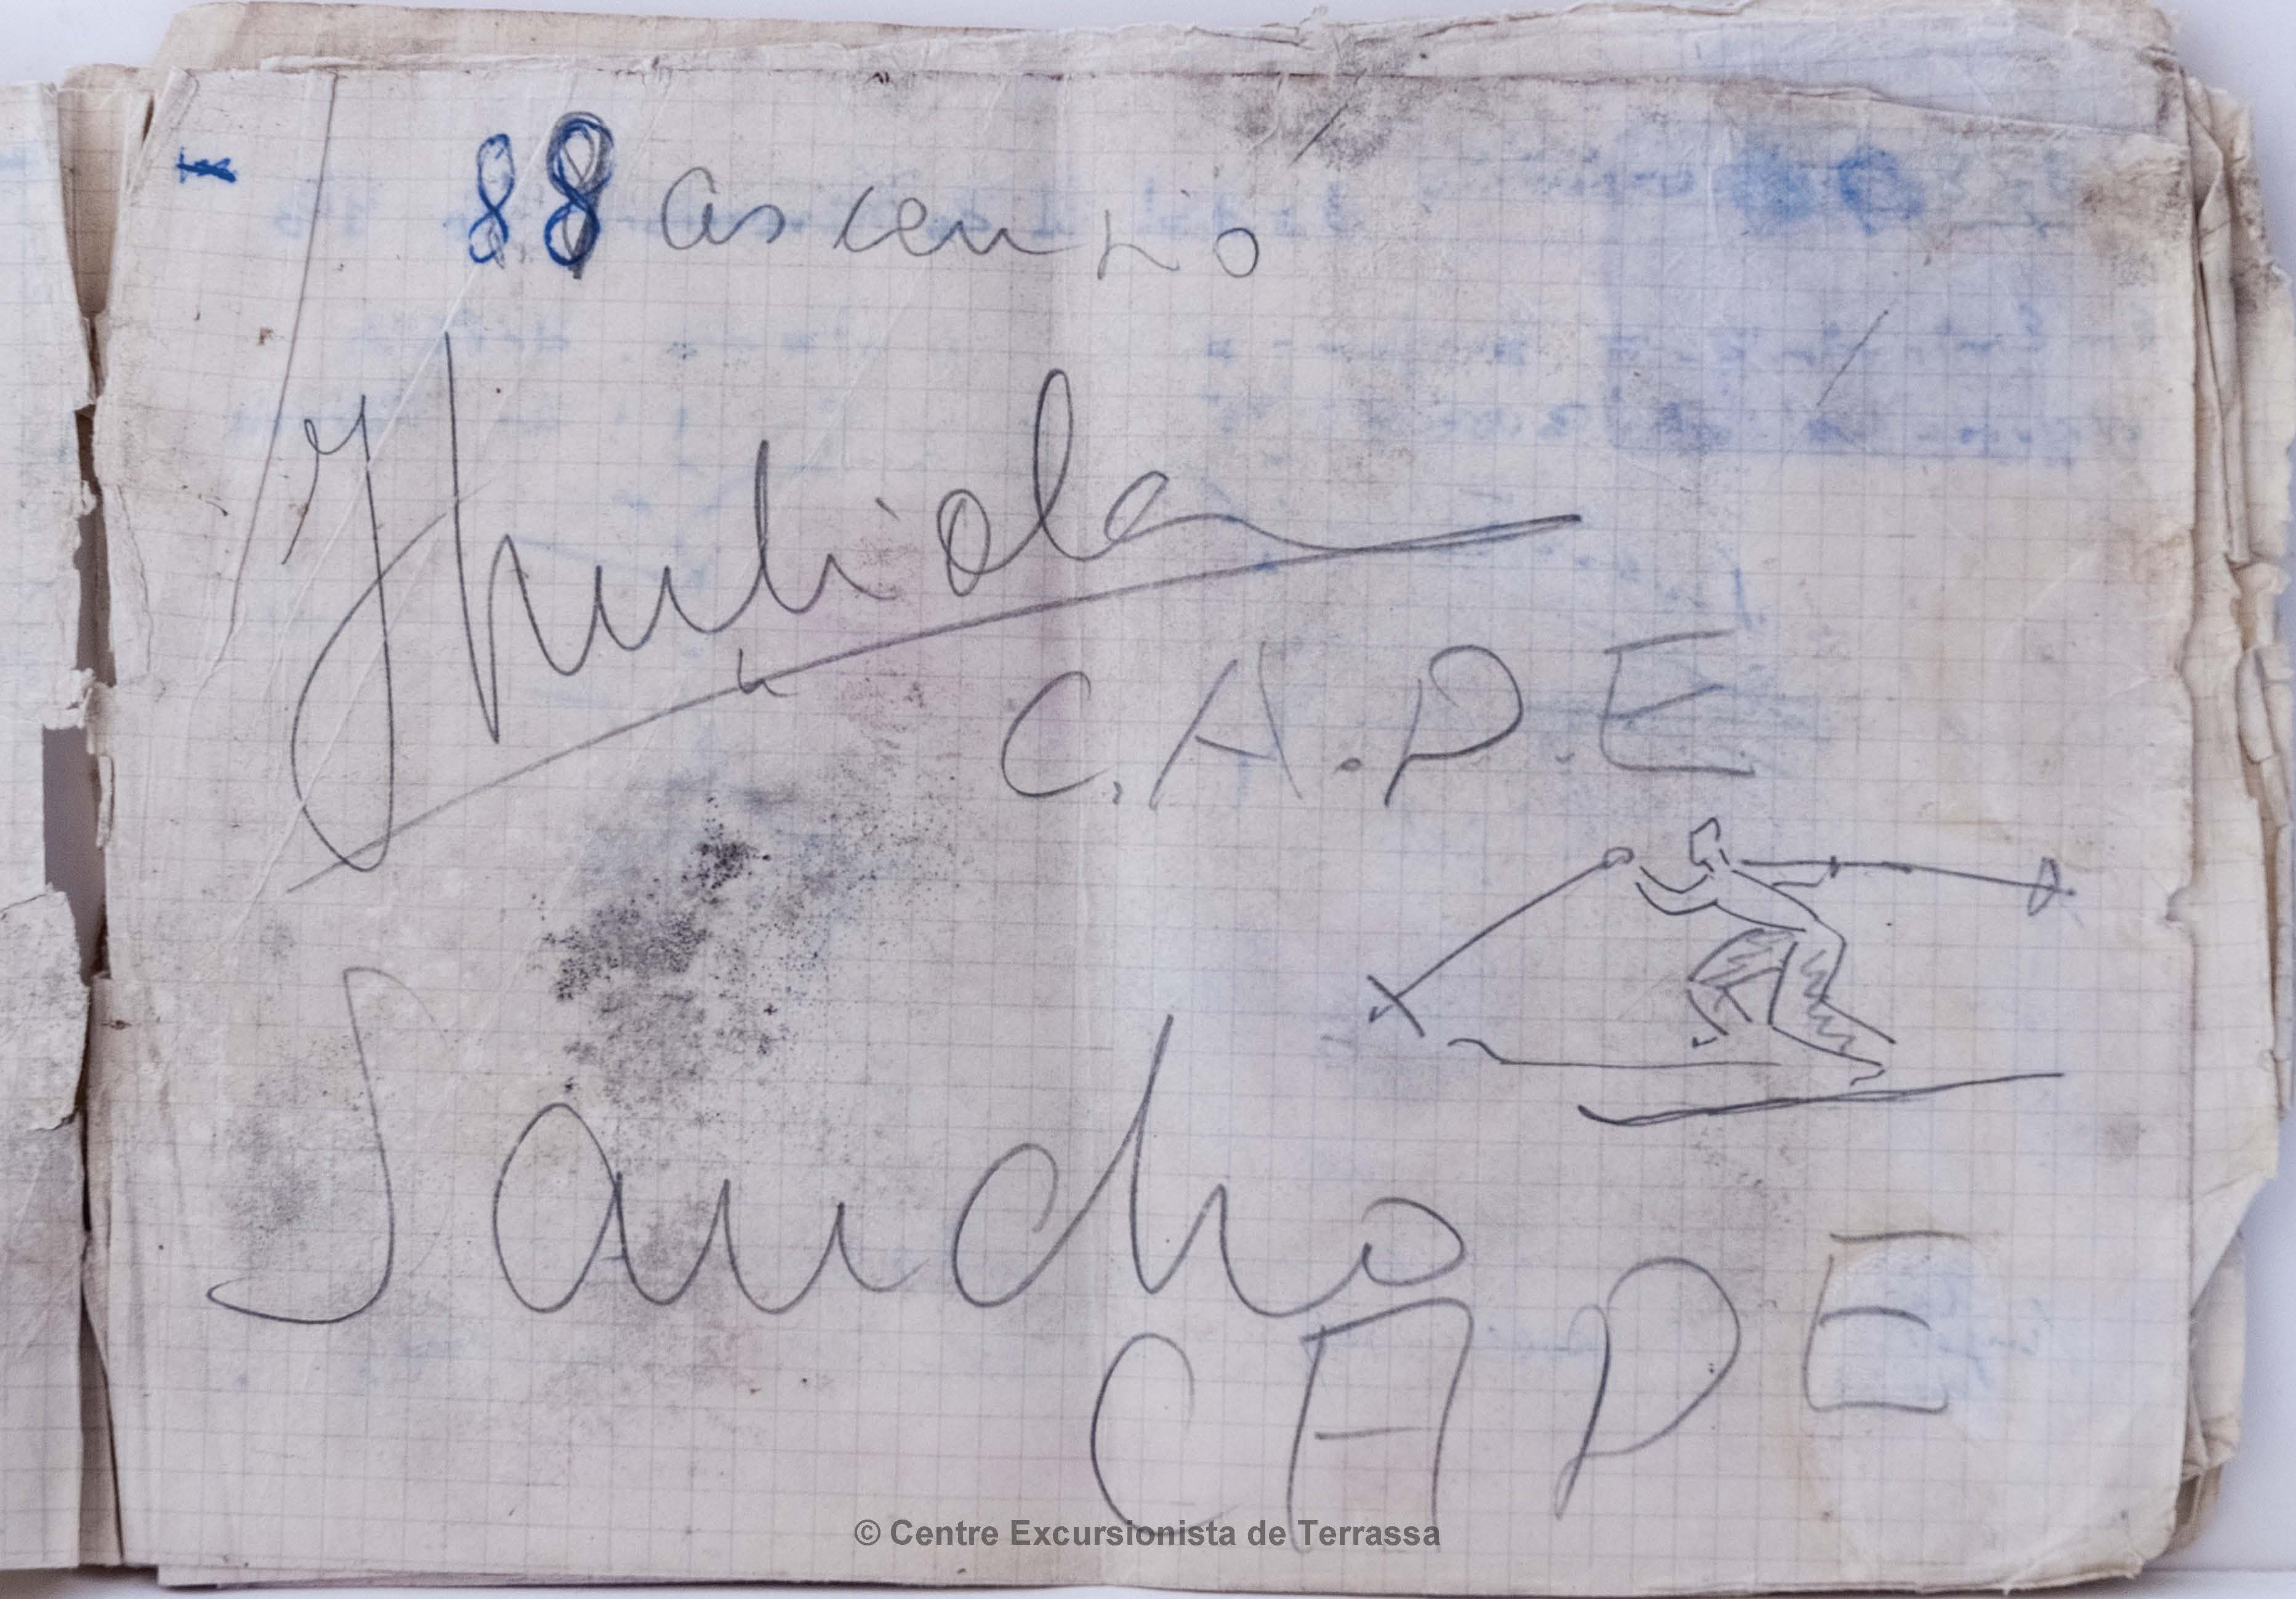 88 ascensio
C.A.D.E
Sancho
CADE
© Centre Excursionista de Terrassa